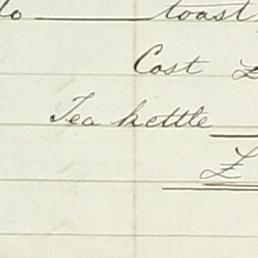 do toast
Cost £
Tea kettle
£